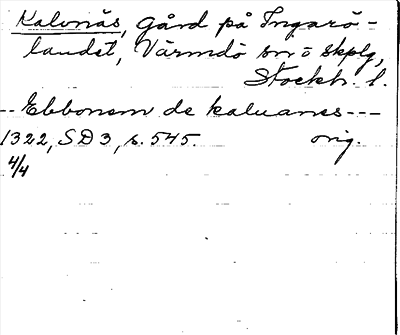 Kalvnäs, Gård på Ingarö-
landet, Värmdö sn o skplg,
Stockh. l.
-- Ebbonem de kaluanes ---
1322, SD 3, s. 545. orig.
4/4